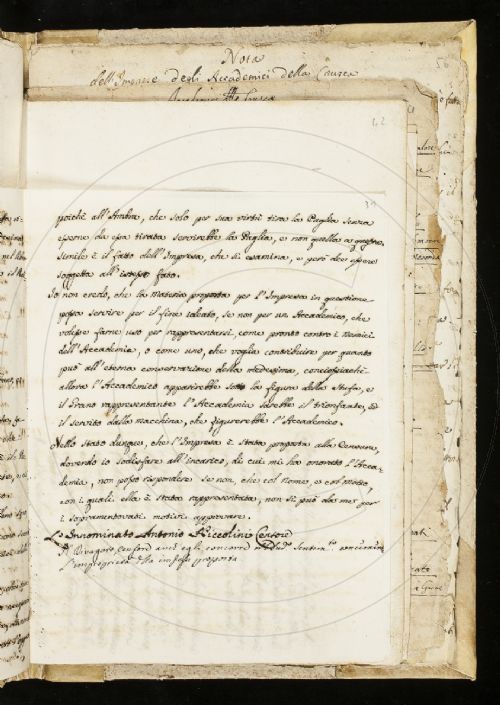 Nota
dell'Imprese degli Accademici della Crusca
42
poichè all'Ambra, che solo per sua virtù tira la Paglia senza
esserne da essa tirata servirebbe la Paglia, e non quella a questa,
simile è il fatto dell'Impresa, che si esamina, e però dee essere
soggetta all'istesso fato.
Io non credo, che la materia proposta per l'Impresa in questione
possa servire per il fine ideato, se non per un Accademico, che
volesse farne uso per rappresentarsi, come pronto contro i Nemici
dell'Accademia, o come uno, che voglia contribuire per quanto
può all'eterna conservazione della medesima, conciossiachè
allora l'Accademico apparirebbe sotto la figura della Stufa, e
il Grano rappresentante l'Accademia sarebbe il trionfante, ed
il servito dalla macchina, che figurerebbe l'Accademico.
Nello stato dunque, che l'Impresa è stata proposta alla Censura,
dovendo io sodisfare all'incarico, di cui mi ha onorato l'Acca-
demia, non posso rispondere se non, che col nome, e col motto,
con i quali ella è stata rappresentata, non si può da me per
i sopramentovati motivi approvare.
Lo Innominato Antonio Niccolini Censore
Censore anch'egli concorre
l'improprietà impresa proposta